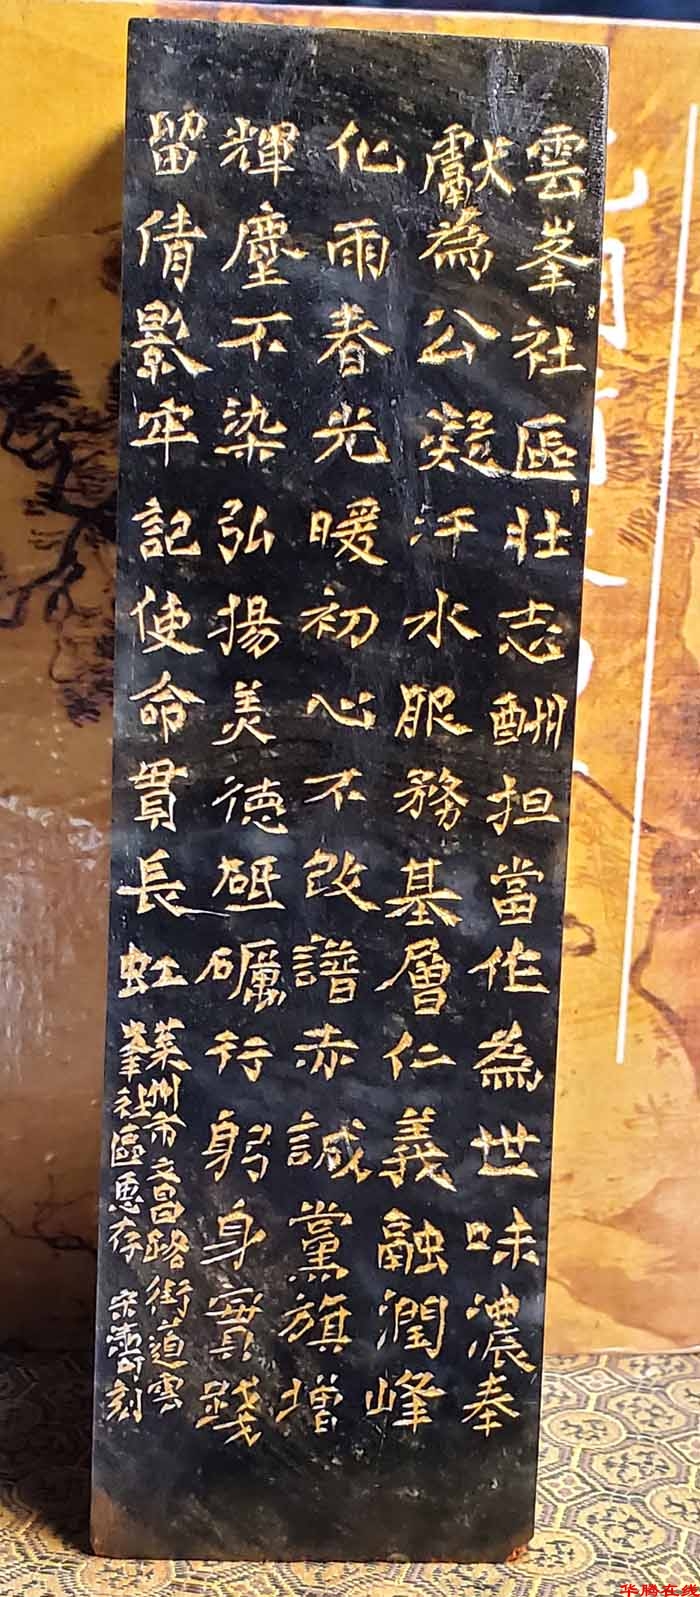 雲峯社區壯志酬担當作為世味濃奉
獻為公凝汗水服務基層仁義融潤峰
化雨春光暖初心不改譜赤誠黨旗增
輝塵不染弘揚美德砥礪行躬身實踐
留倩影牢記使命貫長虹
萊州市文昌路街道雲
峯社區惠存 宋可刻
华腾在线